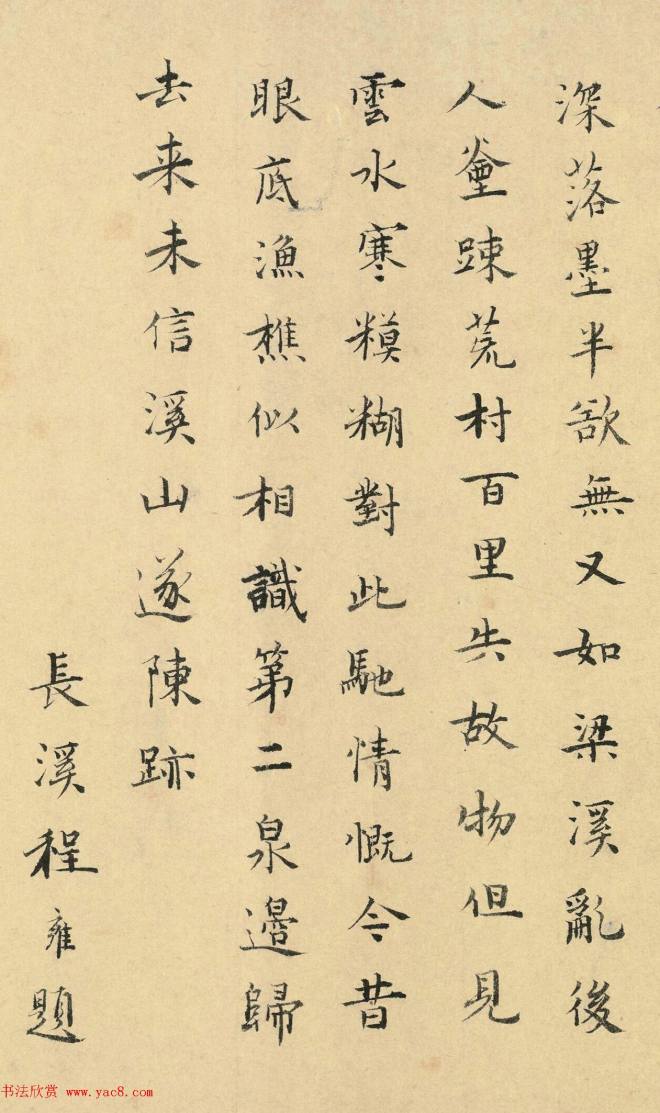 深落墨半欲無又如梁溪亂後
人壑踈荒村百里失故物但見
雲水寒糢糊對此馳情慨今昔
眼底漁樵似相識第二泉邊歸
去来未信溪山遂陳跡
長溪程雍題
书法欣赏 www.yac8.com